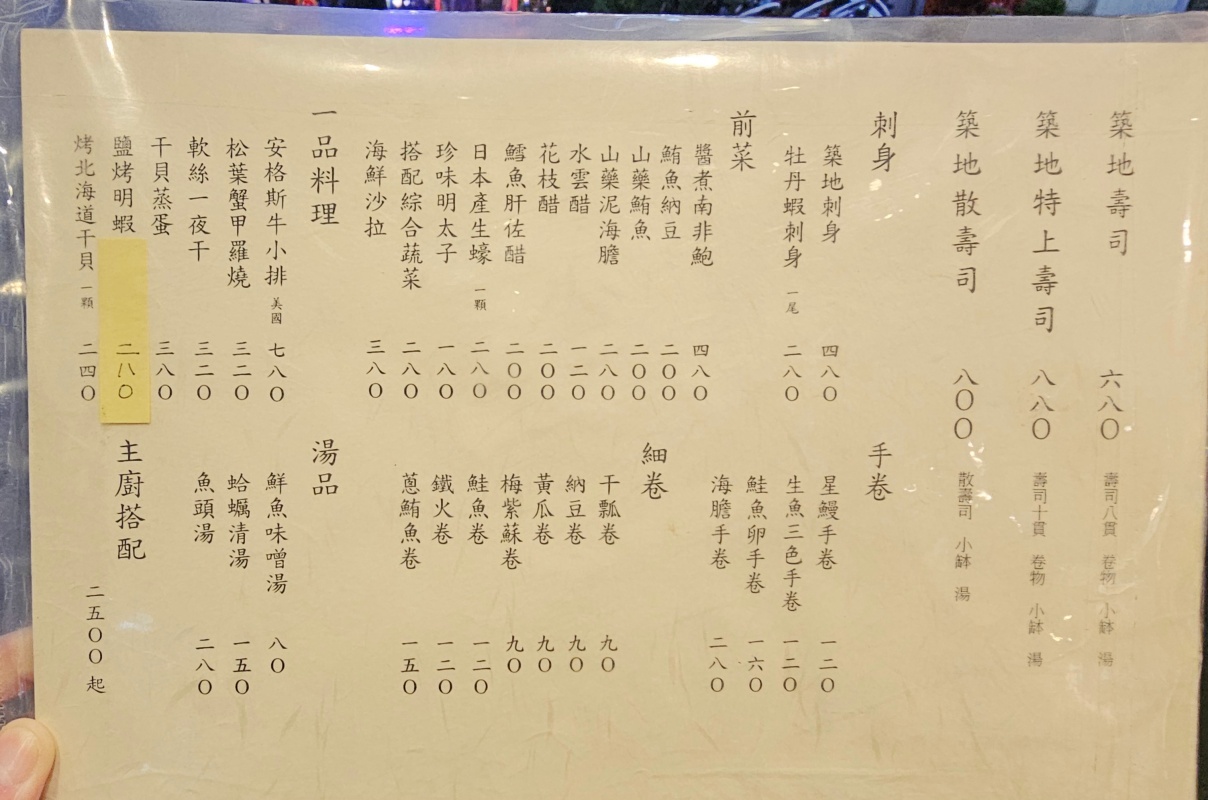 築地壽司 六八〇 壽司八貫 卷物 小缽 湯
築地特上壽司 八八〇 壽司十貫 卷物 小缽 湯
築地散壽司 八〇〇 散壽司 小缽 湯
刺身
築地刺身 四八〇
牡丹蝦刺身 一尾 二八〇
手卷
星鰻手卷 一二〇
生魚三色手卷 一二〇
鮭魚卵手卷 一六〇
海膽手卷 二八〇
前菜
醬煮南非鮑 四八〇
鮪魚納豆 二〇〇
山藥鮪魚 二〇〇
山藥泥海膽 二八〇
水雲醋 一二〇
花枝醋 二〇〇
鱈魚肝佐醋 二〇〇
日本產生蠔 一顆 二八〇
珍味明太子 一八〇
搭配綜合蔬菜 二八〇
海鮮沙拉 三八〇
細卷
干瓢卷 九〇
納豆卷 九〇
黃瓜卷 九〇
梅紫蘇卷 九〇
鮭魚卷 一二〇
鐵火卷 一二〇
蔥鮪魚卷 一五〇
一品料理
安格斯牛小排 美國 七八〇
松葉蟹甲羅燒 三二〇
軟絲一夜干 三二〇
干貝蒸蛋 三八〇
鹽烤明蝦 二八〇
烤北海道干貝 一顆 二四〇
湯品
鮮魚味噌湯 八〇
蛤蠣清湯 一五〇
魚頭湯 二八〇
主廚搭配
二五〇〇起